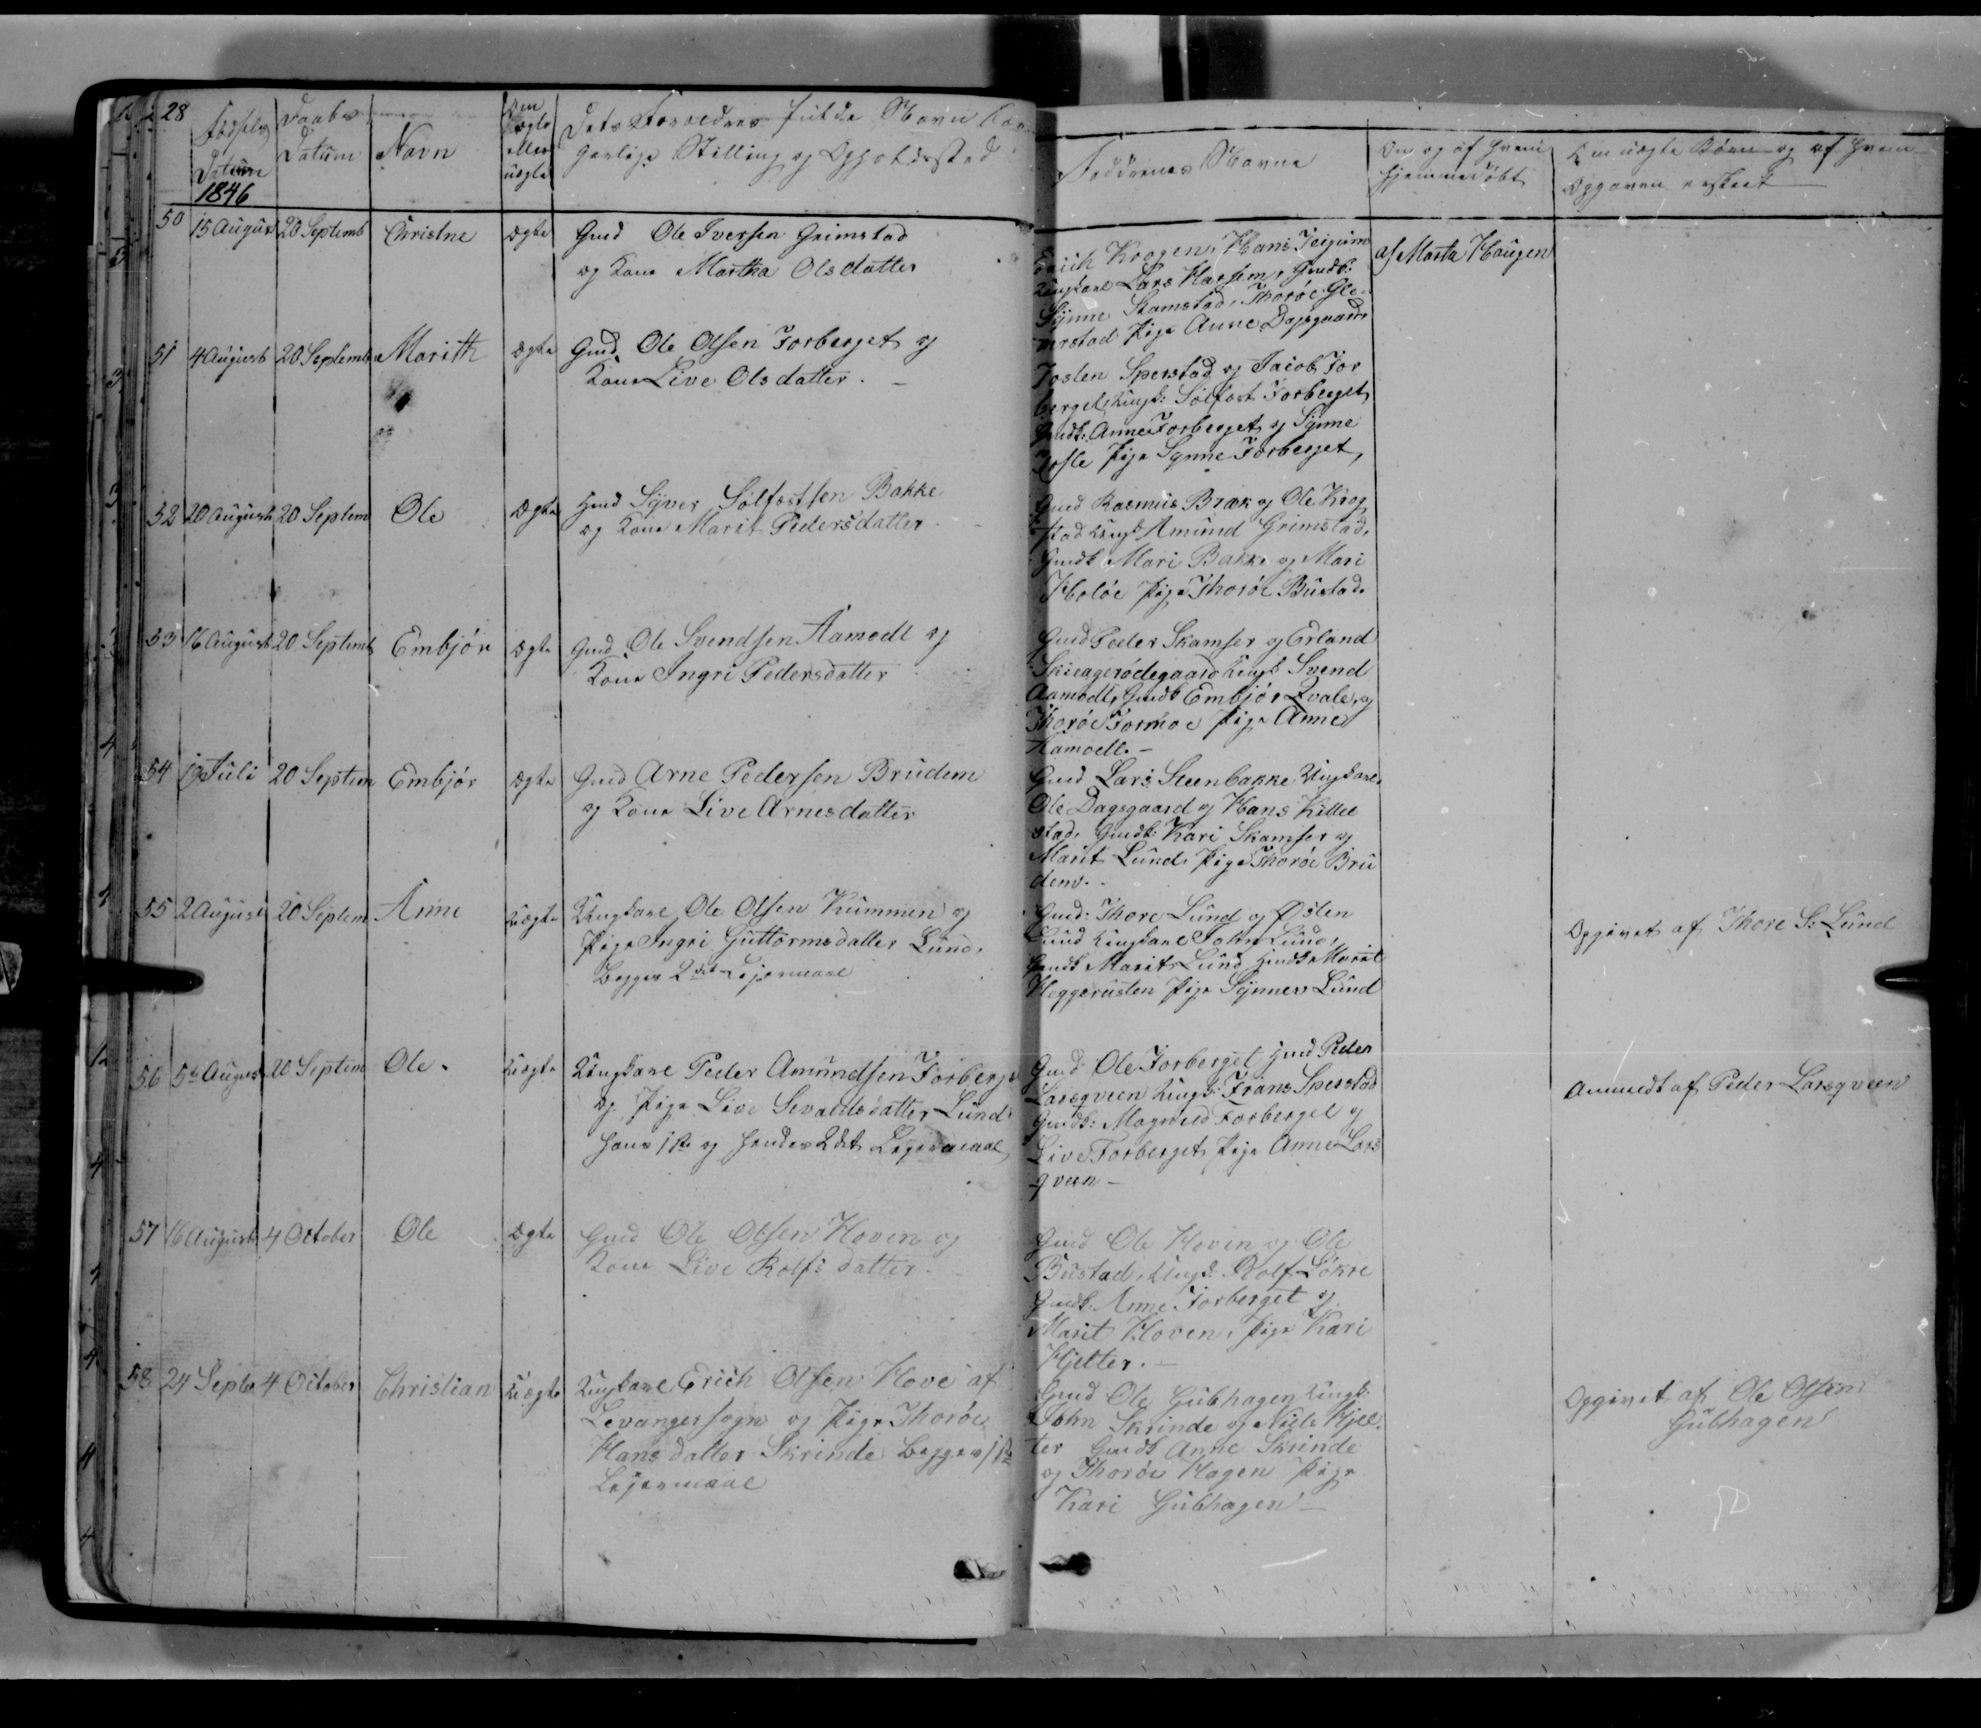 28
Fødsels Datum
Daabs Datum
Navn
Om ægte eller uægte
Dets Forældres fulde Navn
Stilling og Opholdssted
Faddernes Navne
Om og af hvem hjemmedøbt
Om uægte Børn og af hvem Opgaven er skeet
1846
50 15 August 20 Septemb Christne ægte Gmd Ole Iversen Grimstad
og Kone Martha Olsdatter
Erich Krogen, Hans
Ungkarl Lars Gmdk:
Synne Skamstad, Thorøe Gle
merstad Pige Anne Dagsgaard
af Marta Haugen
51 4 August 20 Septemb Marith ægte Gmd Ole Olsen Forberget og
Kone Live Olsdatter. –
Josten Sperstad og Jacob For
berget, Ungk: Sølfast Forberget
Gmdk: Anne Forberget og Synne
Pige Synne Forberget,
52 20 August 20 Septem Ole ægte Hmd Syver Sølfestsen Bakke
og Kone Marit Pedersdatter
Gmd Rasmus Bræk og Ole Krog
stad Ungk Amund Grimstad,
Gmdk Mari Bakke og Mari
Holøe Pige Thorøe Bustad.
53 16 August 20 Septemb Embjør ægte Gmd Ole Svendsen Aamodt og
Kone Ingri Pedersdatter
Gmd Peder Skamser og Erland
Skieagerødegaard Ungk Svend
Aamodt, Gmdk Embjør Qvale, og
Thorøe Formoe Pige Anne
Aamodt. –
54 19 Juli 20 Septem Embjør ægte Gmd Arne Pedersen Brudem
og Kone Live Arnesdatter
Gmd Lars Steenbakke Ungkarl
Ole Dagsgaard og Hans Kille
stad, Gmdk: Kari Skamser og
Marit Lund, Pige Thorøe Bru
dem. –
55 2 August 20 Septem Anne uægte Ungkarl Ole Olsen Kummen og
Pige Ingri Guttormsdatter Lund,
Begges 2det Lejermaal
Gmd: Thore Lund og Østen
Lund Ungkarl John Lund,
Gmdk Marit Lund Hmdk Marit
Heggerusten Pige Synnev Lund
Opgivet af Thore S: Lund
56 5te August 20 Septem Ole. uægte Ungkarl Peder Amundsen Forberge
og Pige Live Sevaldsdatter Lund
hans 1ste og hendes 2det Lejermaal
Gmd Ole Forberget, Hmd Peder
Larsqveen Ungk: Frans Sperstad
Gmdk: Magnild Forberget og
Live Forberget, Pige Anne Lars
qveen –
Anmeldt af Peder Larsqveen
57 16 August 4 October Ole ægte Gmd Ole Olsen Hoven og
Kone Live Rolfsdatter.
Gmd Ole Hoven og Ole
Bustad, Ungk: Rolf Løkre
Gmdk. Anne Forberget og
Marit Hoven, Pige Kari
Hjelter. –
58 24 Septbr 4 October Christian uægte Ungkarl Erich Olsen Hove af
Levangersogn og Pige Thorøe
Hansdatter Skrinde Begges 1ste
Lejermaal
Gmd Ole Gubhagen Ungk:
John Skrinde og Niels Hjel
ter Gmdk Anne Skrinde
og Thorøe Hagen Pige
Kari Gubhagen –
Opgivet af Ole Olsen
Gubhagen